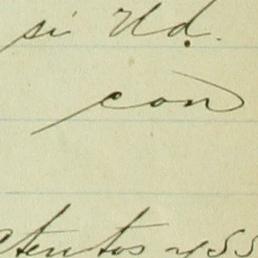 si Ud.
con
atentos y SS